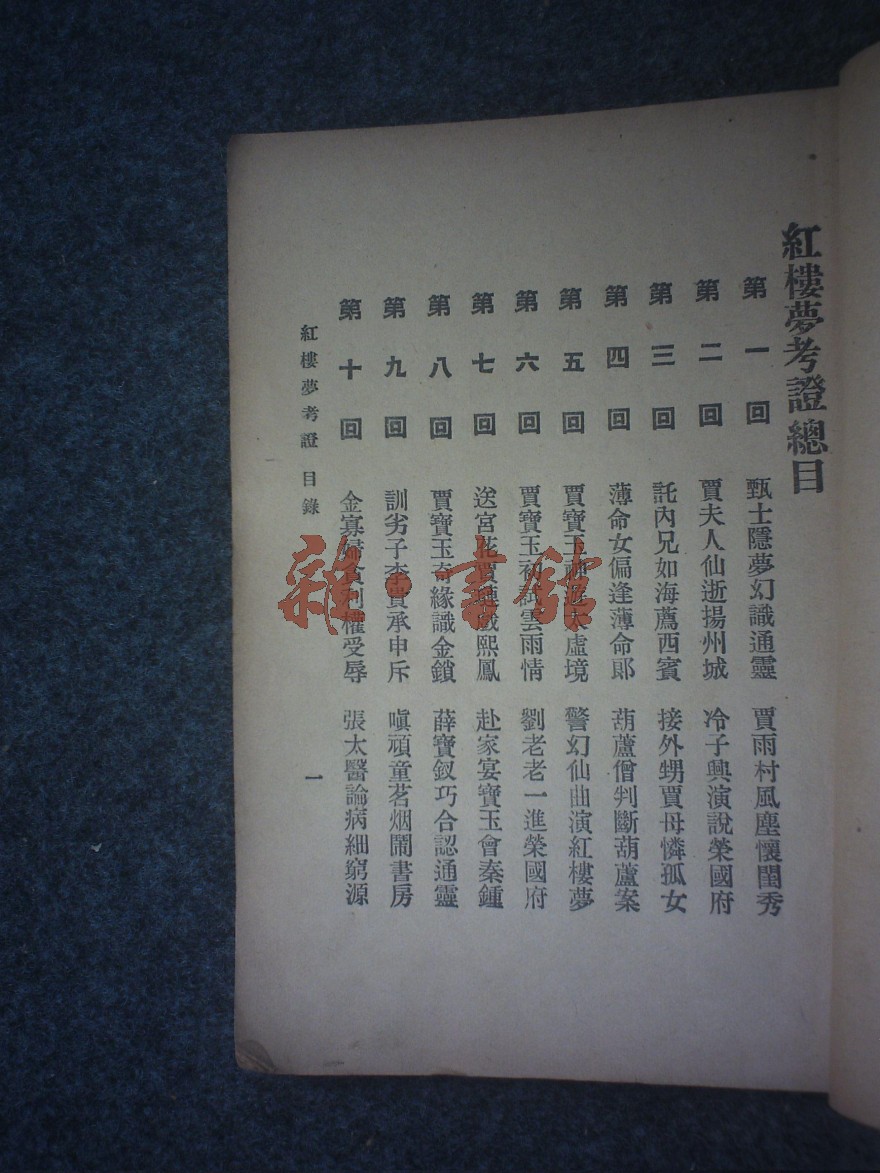 紅樓夢考證總目
第一回 甄士隱夢幻識通靈 賈雨村風塵懷閨秀
第二回 賈夫人仙逝揚州城 冷子興演說榮國府
第三回 託內兄如海薦西賓 接外甥賈母憐孤女
第四回 薄命女偏逢薄命郎 葫蘆僧判斷葫蘆案
第五回 賈寶玉神遊太虛境 警幻仙曲演紅樓夢
第六回 賈寶玉初試雲雨情 劉老老一進榮國府
第七回 送宮花賈璉戲熙鳳 赴家宴寶玉會秦鍾
第八回 賈寶玉奇緣識金鎖 薛寶釵巧合認通靈
第九回 訓劣子李貴承申斥 嗔頑童茗烟鬧書房
第十回 金寡婦貪利權受辱 張太醫論病細窮源
紅樓夢考證 目錄 一
雜·書館